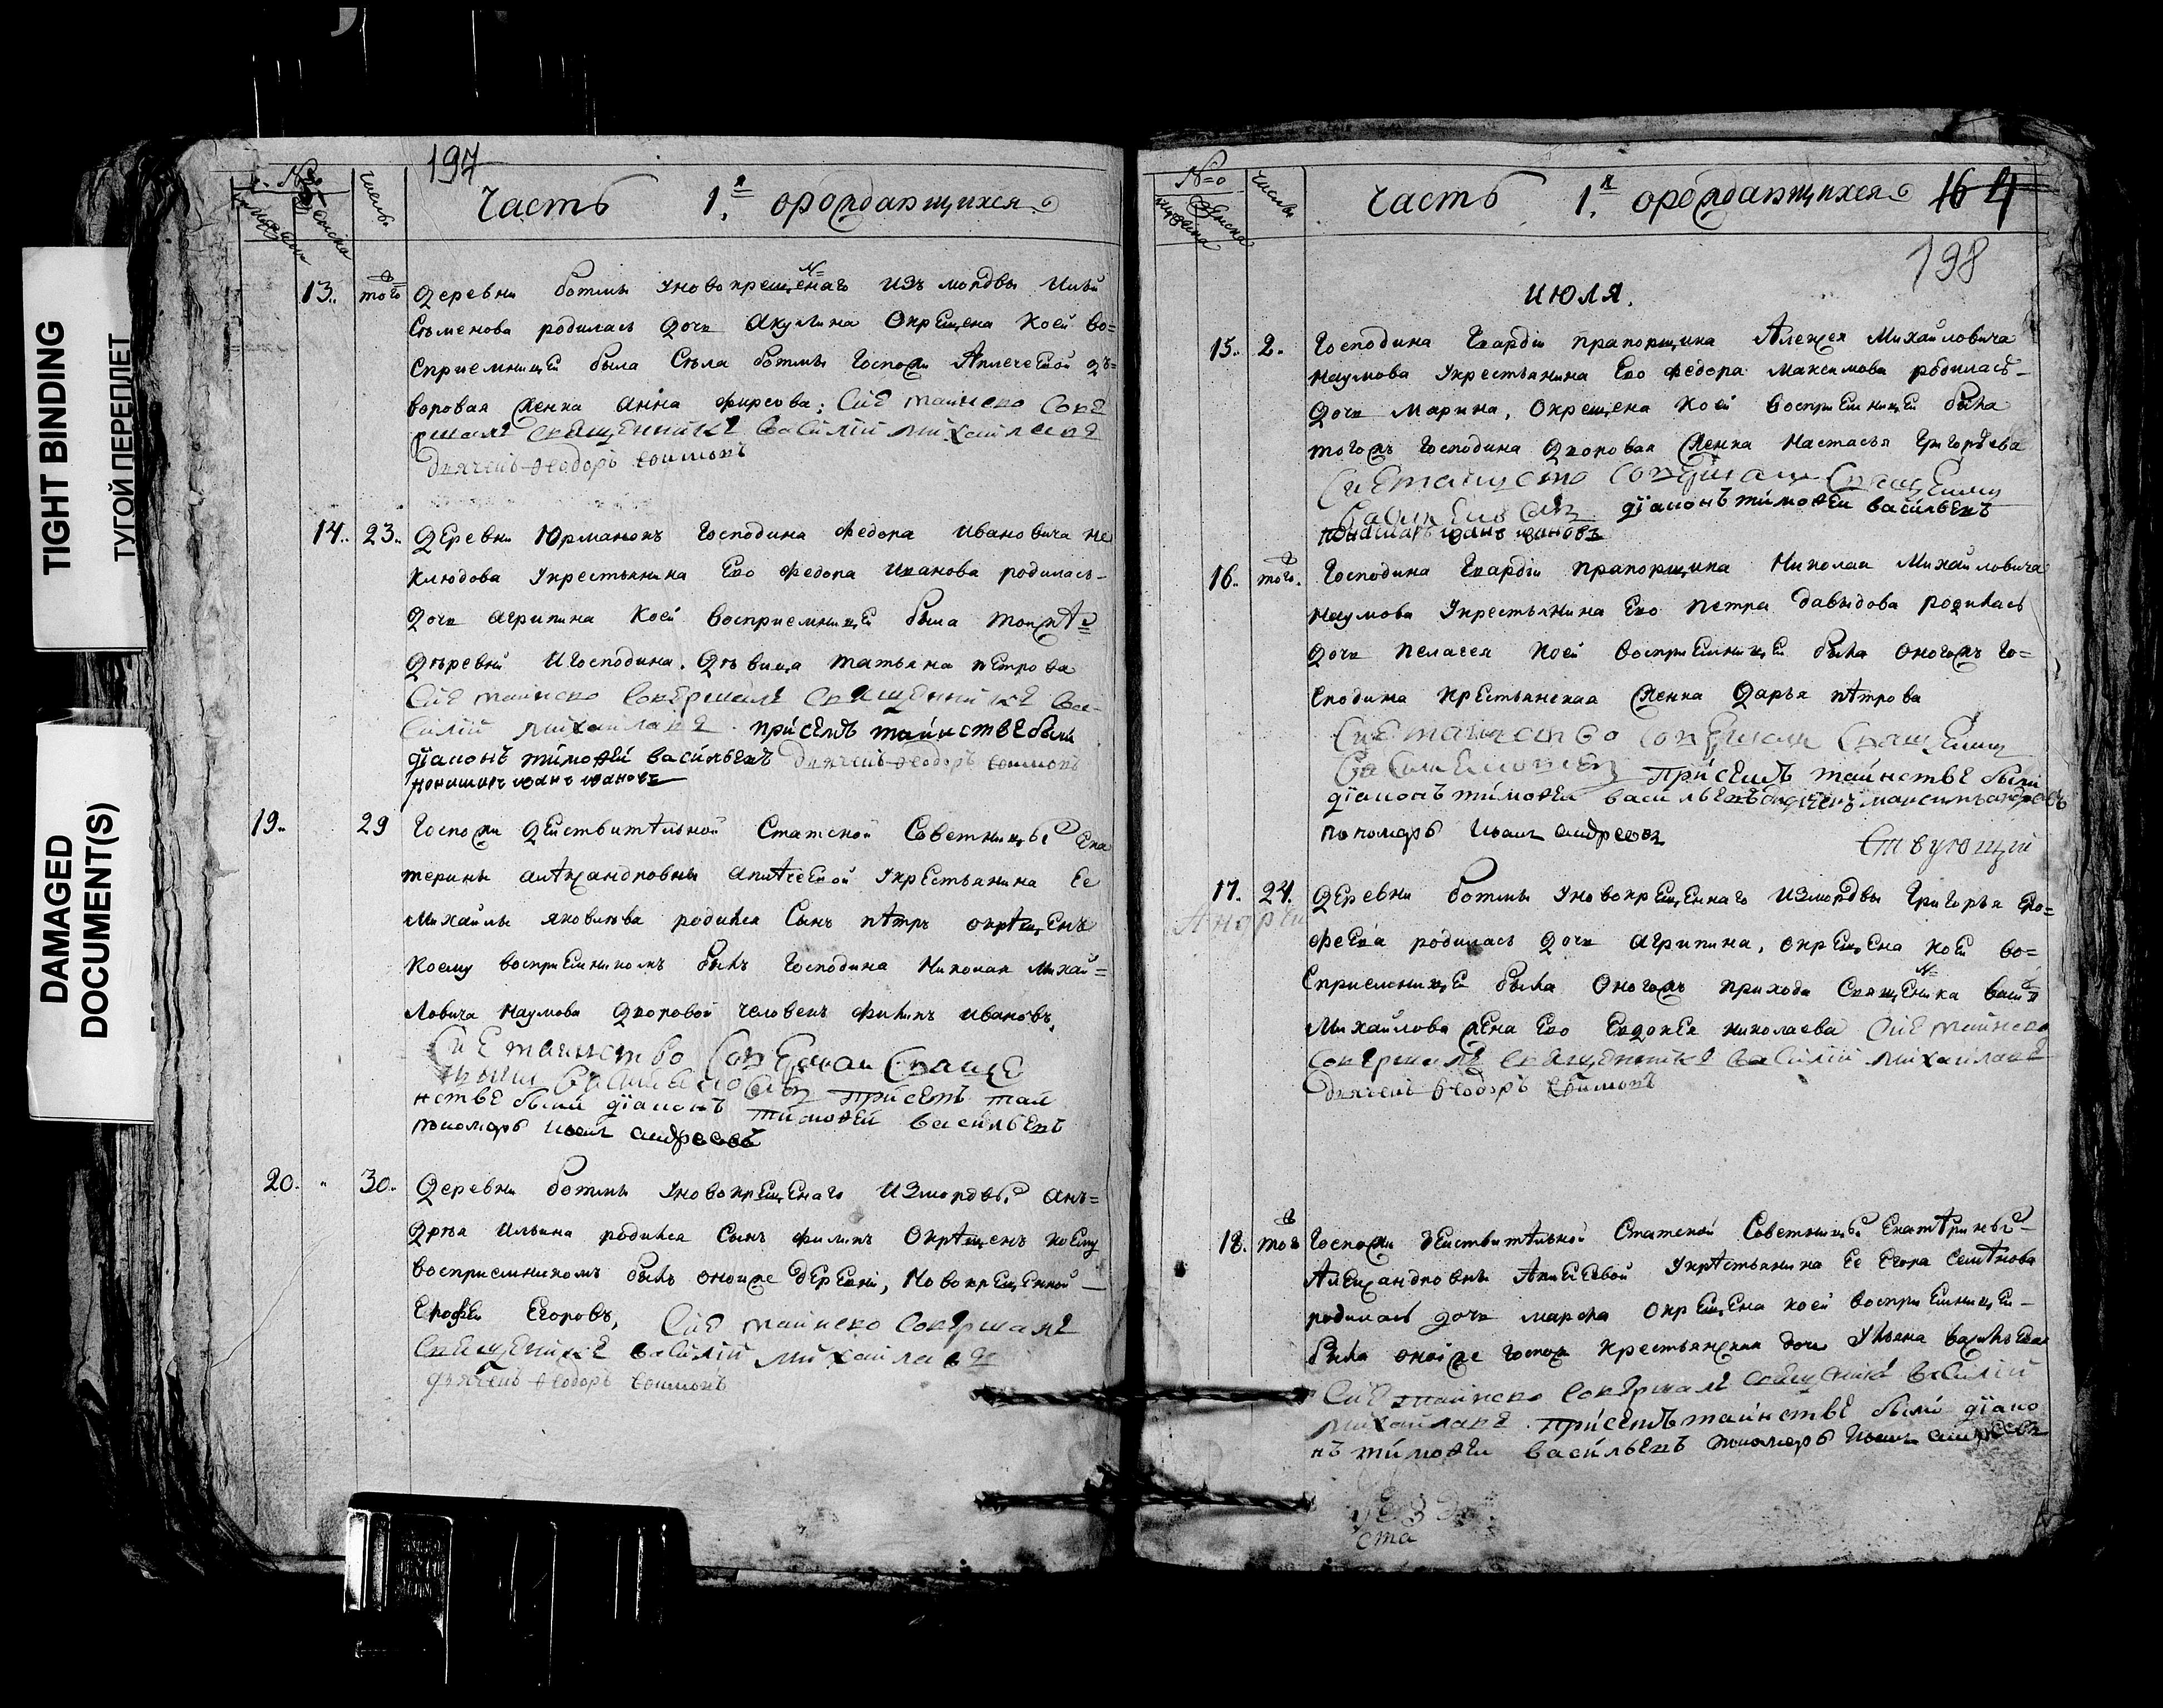 TIGHT BINDING
ТУГОЙ ПЕРЕПЛЕТ
DAMAGED
DOCUMENT(S)
197
№ числы Часть 1.я орождающихся
13. того деревни ботмы уновокрещенаго изъ мордвы Ильи
Семенова родилась дочь Акулина Окрещена коей во=
сприемницей была Села ботмы Госпожи Аплечеевой дъ=
воровая женка Анна Фирсова; Сие таинсво Сове
ршалъ священникъ василий михаиловъ
дьячекъ Феодоръ
14. 23. деревни Юрманокъ Господина Федора Ивановича не
клюдова укрестьянина Ево Федора Иванова родилась
дочь агрипина коей восприемницей была тоижъ
деревни Игосподина девица татьяна петрова
Сие таинсво Совершалъ священникъ ва
силий михаиловъ присемъ таинстве были
диаконъ тимофеи васильевъ дьячекъ Феодоръ
пономарь иванъ ивановъ
19. 29 Госпожи действительной Статской Советницы Ека
терины александровны аплечеевой укрестьянина Ее
Михаилы яковлева родился Сынъ петръ окрещенъ
коему восприемникомъ былъ Господина Николая Михай=
ловича Наумова дворовой человекъ филипъ ивановъ
Сие таинство Совершал Свяще
присемъ таи
нстве были диаконъ тимофей васильевъ
пономарь иванъ андреевъ
20. 30. деревни ботмы уновокрещенаго Измордвы анъ=
дрея Ильина родился Сынъ филипъ Окрещенъ коему
восприемникомъ былъ оноиже деревни, новокрещенной
Ерофеи Егоровъ, Сие таинсво Совершалъ
священникъ василий михаиловъ
дьячекъ Феодоръ
№ числы Часть 1.я орождающихся 164
198
ИЮЛЯ.
15. 2. Господина Гвардии прапорщика Алексея Михайловича
Наумова укрестьянина Ево Федора Максимова родилась
дочь Марина, Окрещена коей восприемницей была
тогожъ Господина дворовая женка Настасья Григорьева
Сие таинство Совершал Священник
диаконъ тимофеи васильевъ
пономарь иванъ ивановъ
16. того. Господина Гвардии прапорщика Николая Михайловича
Наумова укрестьянина Ево Петра Давыдова родилась
дочь пелагея коей восприемницей была оногожъ го=
сподина крестьянская женка Дарья петрова
Сие таинство Совершал Священник
присемъ таинстве были
диаконъ тимофеи васильевъ дьячекъ максимъ андреевъ
пономарь иванъ андреевъ
17. 24. деревни ботмы уновокрещеннаго Измордвы Григорья Еро=
Андрей
феева родилась дочь агрипина, окрещена коей во=
сприемницей была Оногожъ прихода Священика васил
Михайлова жена Ево Евдокея николаева Сие таинсво
Совершалъ священникъ василий михаиловъ
дьячекъ Феодоръ
18. того Госпожи действительной Статской Советницы Екатерины
Александровны Аплечеевой укрестьянина Ее Егора Семенова
родилась дочь марфа Окрещена коей восприемницей
была оноиже госпож крестьянская дочь Ульяна васильева
Сие таинсво Совершалъ священикъ василий
михаиловъ. присемъ таинстве были диако
нъ тимофеи васильевъ пономарь иванъ андреевъ
ста